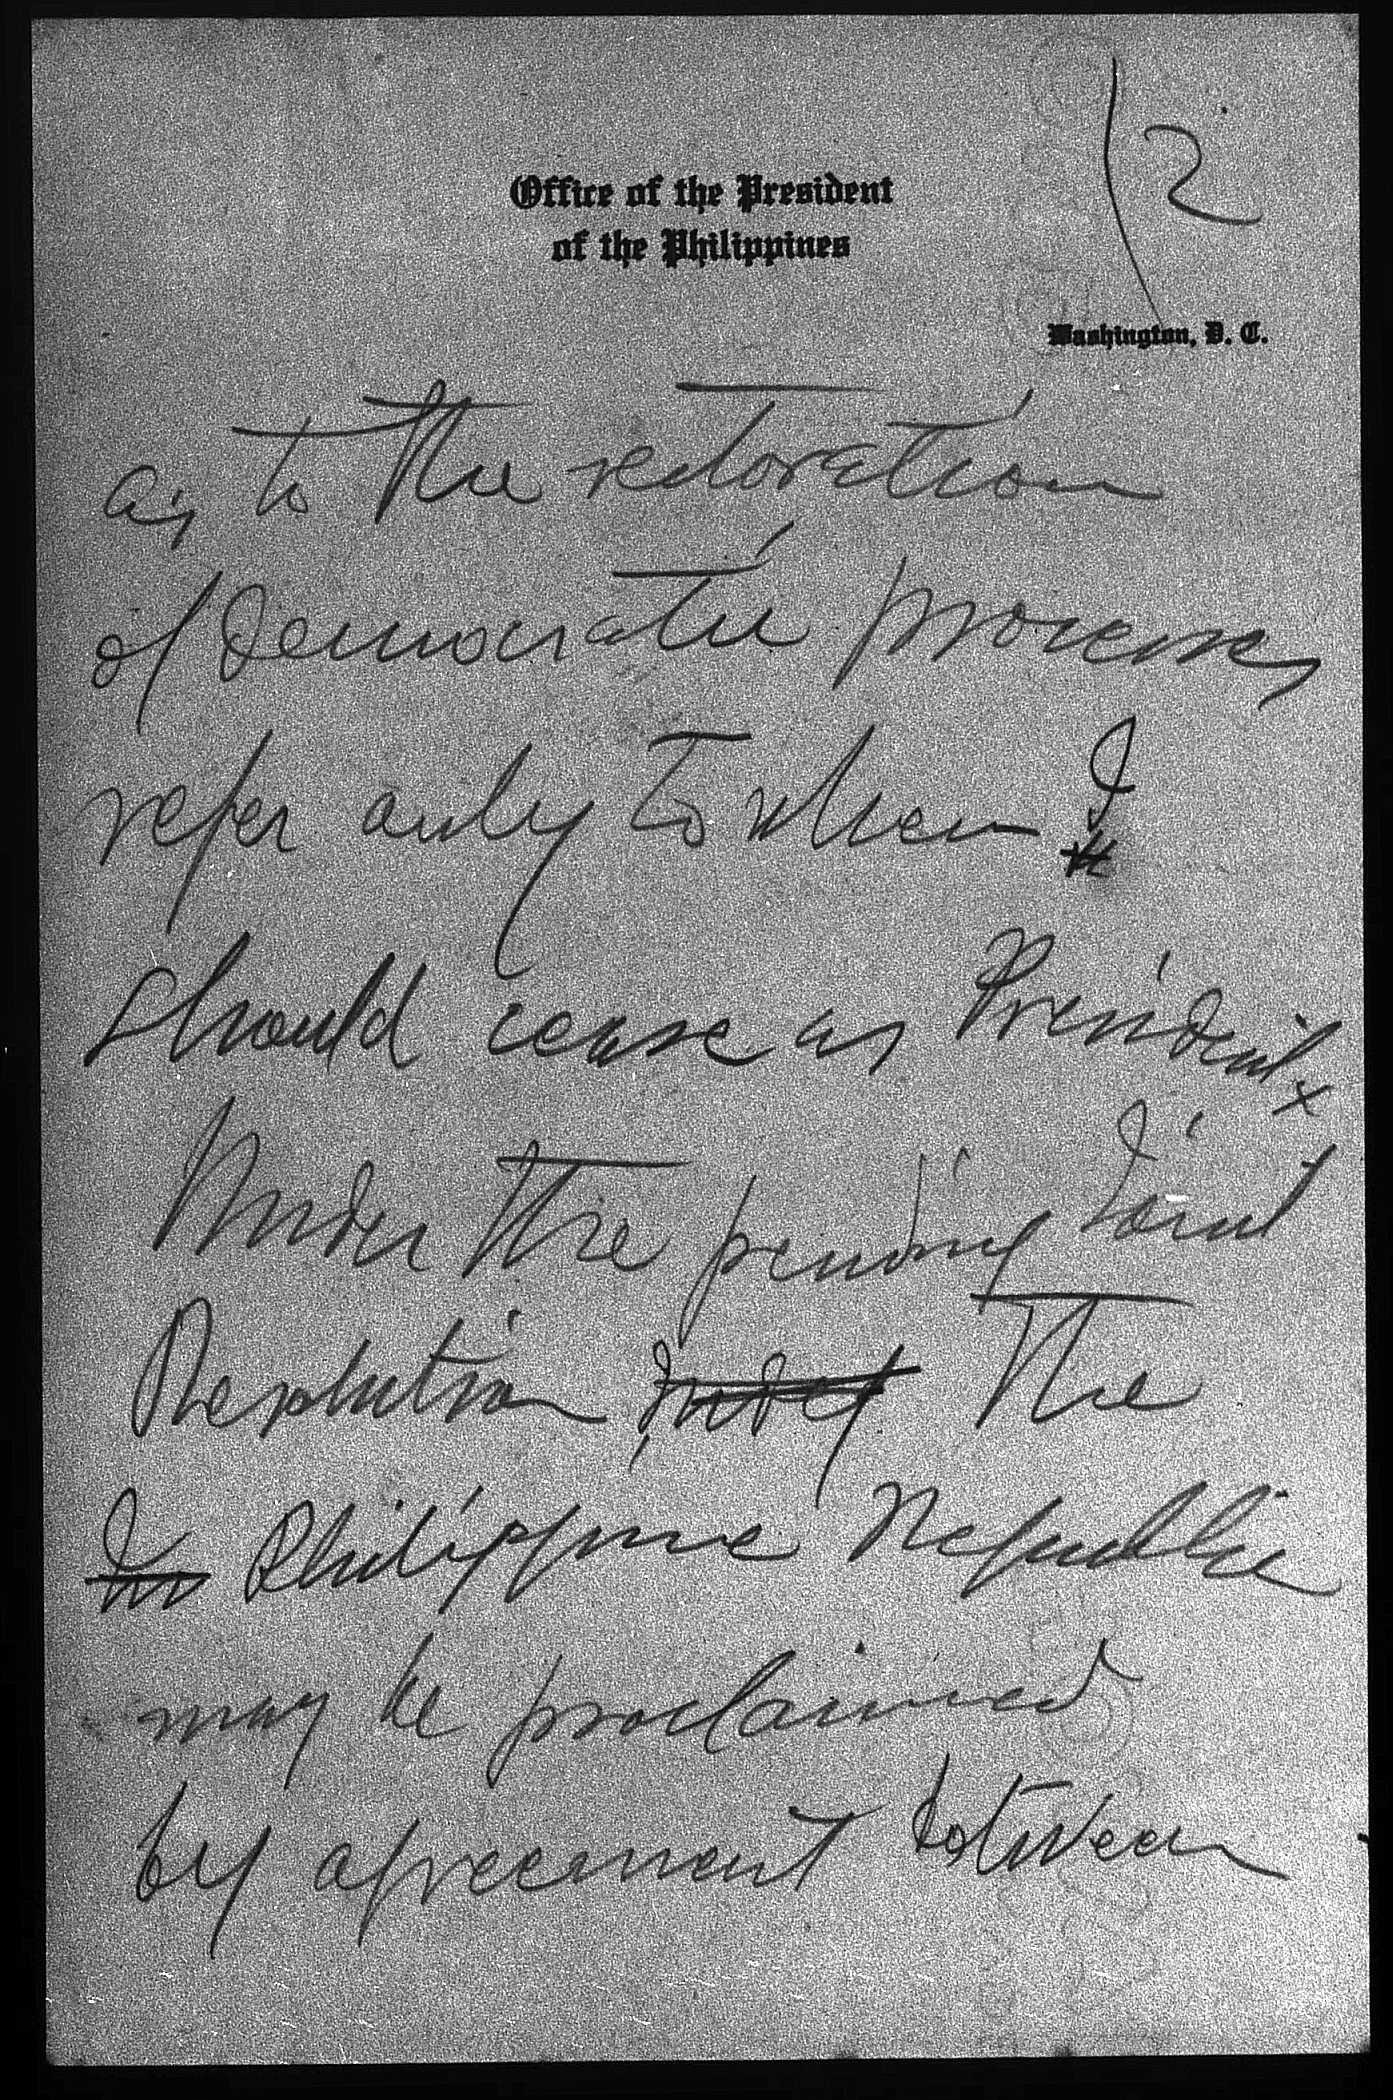 2
Office of the President
of the Philippines
Washington, D. C.
as to the restoration
of democratic processes
refer only to when I
should cease as President x
Under the pending Joint
Resolution the
Philippine Republic
may be proclaimed
by agreement between